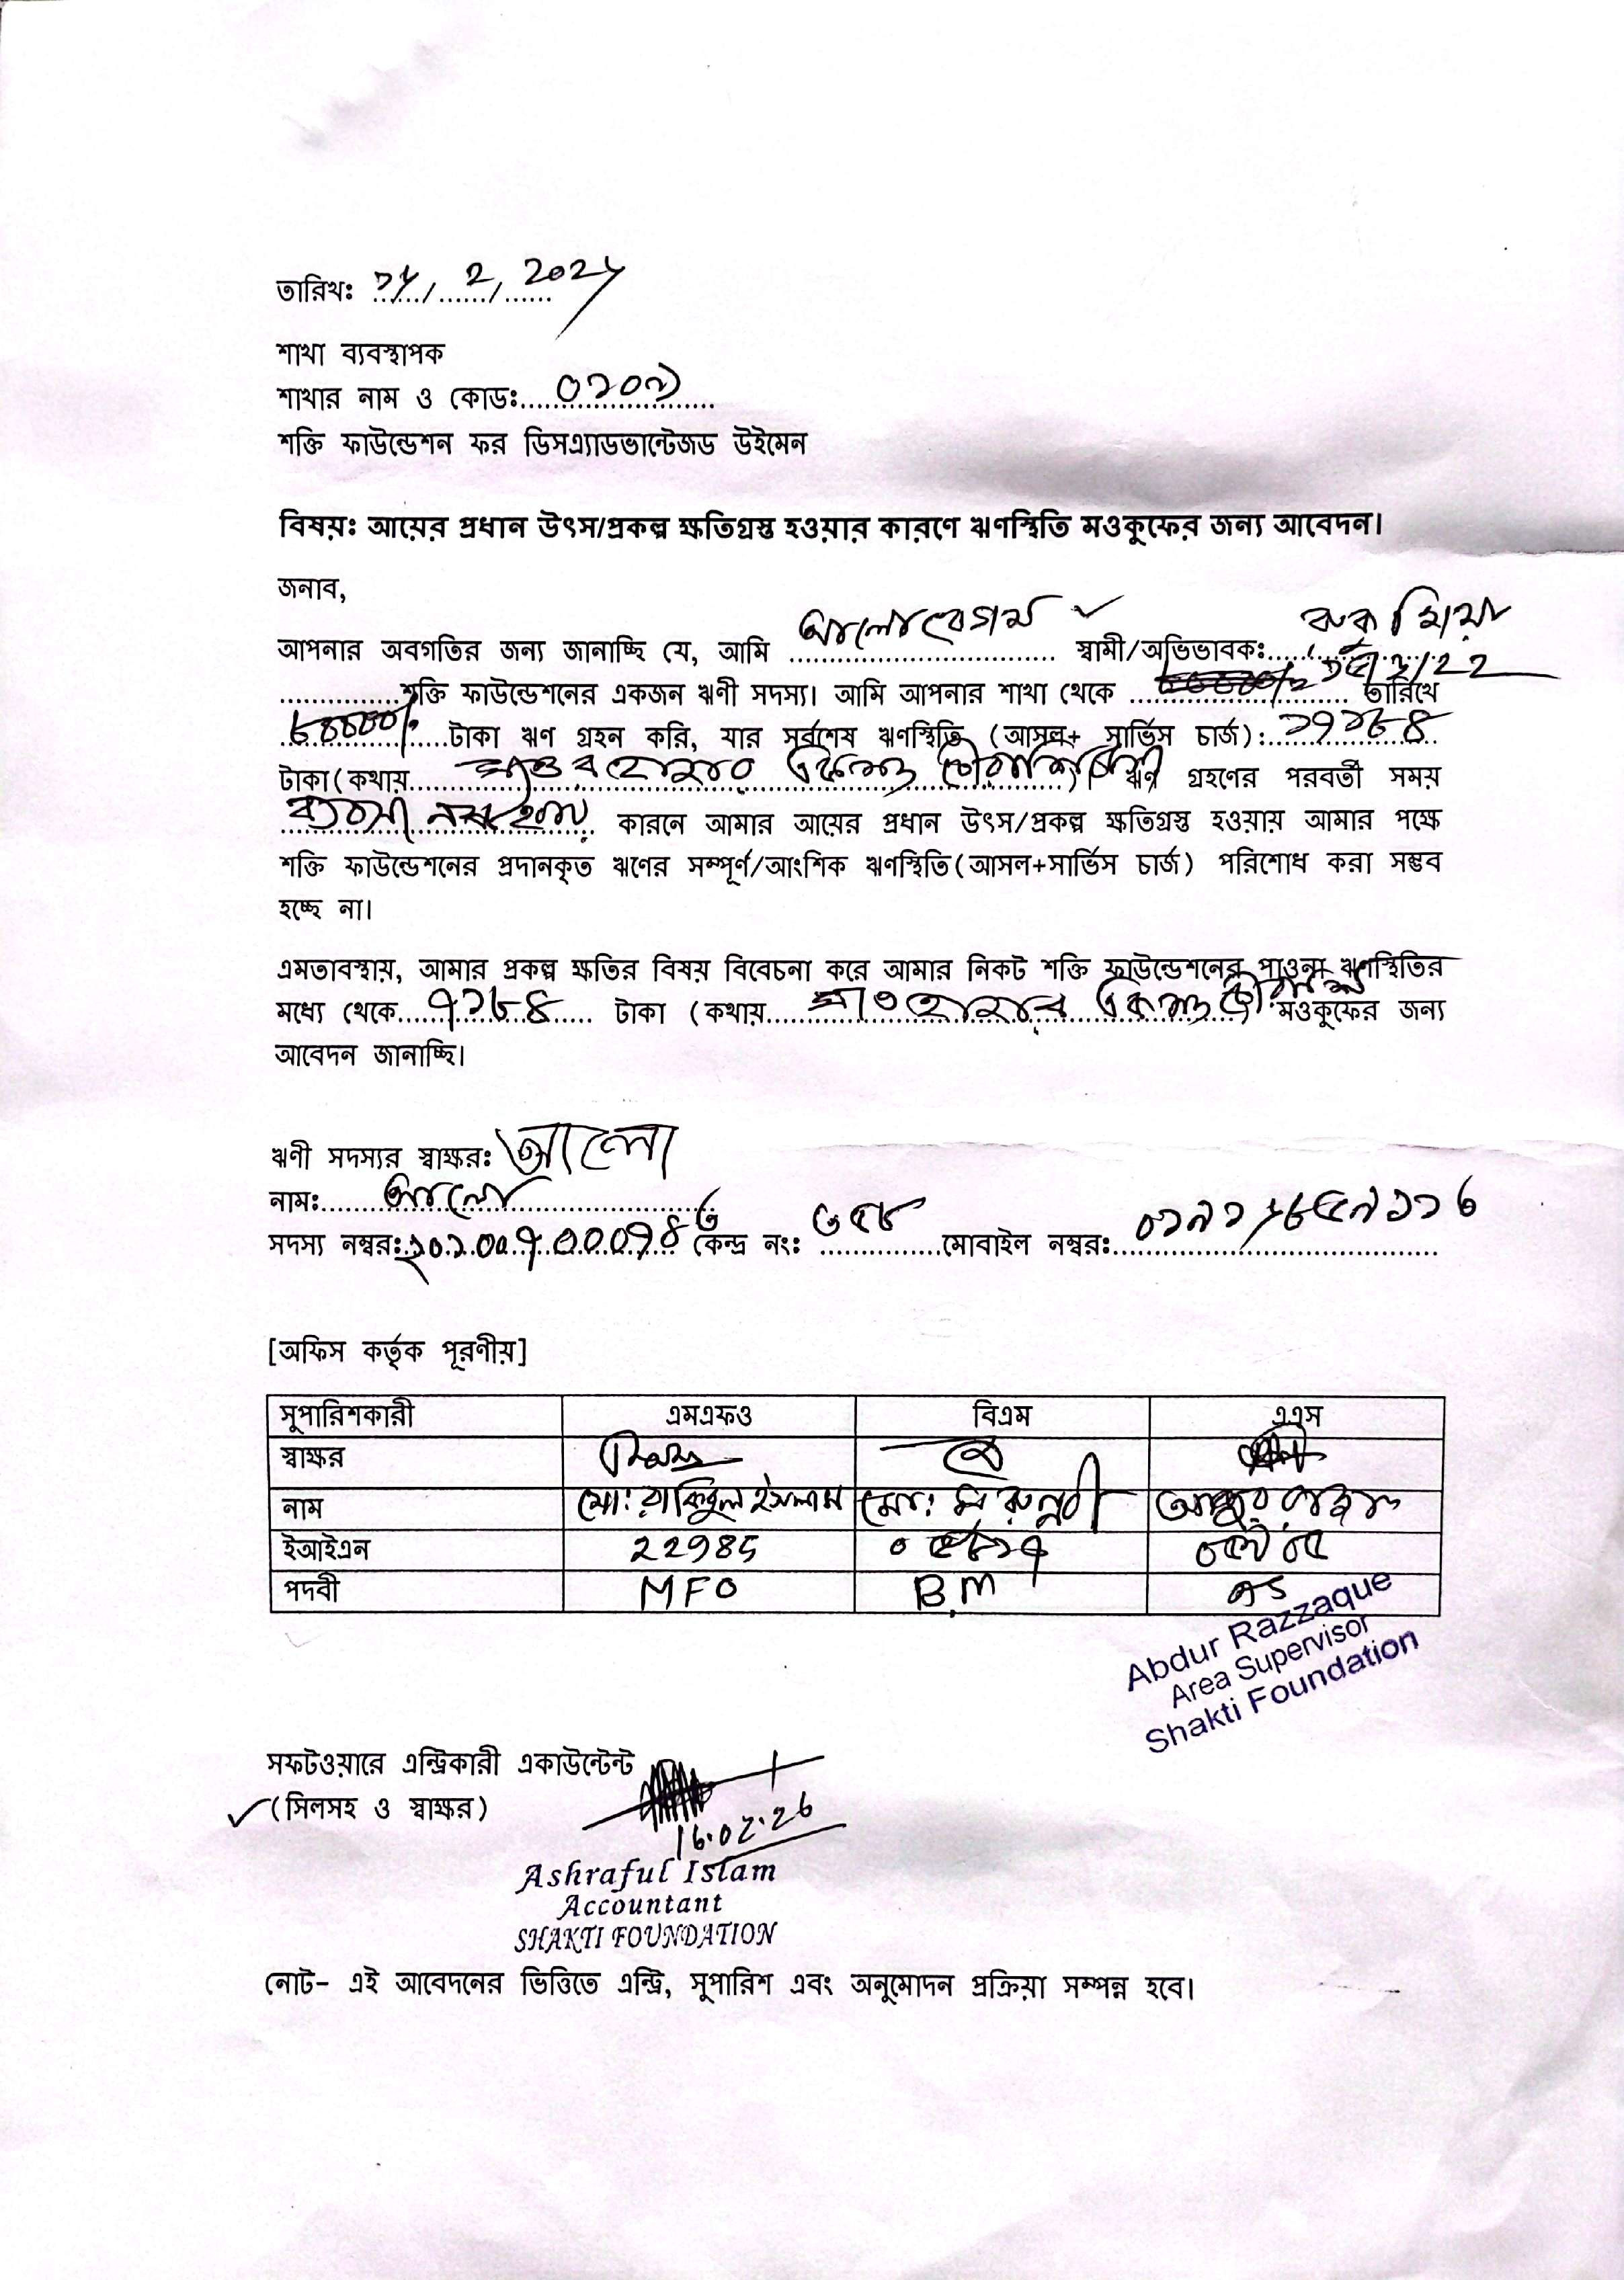 তারিখঃ ....../....../......
শাখা ব্যবস্থাপক
শাখার নাম ও কোডঃ..........................
শক্তি ফাউন্ডেশন ফর ডিসএ্যাডভান্টেজড উইমেন
বিষয়ঃ আয়ের প্রধান উৎস/প্রকল্প ক্ষতিগ্রস্ত হওয়ার কারণে ঋণস্থিতি মওকুফের জন্য আবেদন।
জনাব,
আপনার অবগতির জন্য জানাচ্ছি যে, আমি আলো বেগম স্বামী/অভিভাবকঃ...... মিয়া
...............শক্তি ফাউন্ডেশনের একজন ঋণী সদস্য। আমি আপনার শাখা থেকে .......................... তারিখে
৮০০০০/- টাকা ঋণ গ্রহন করি, যার সর্বশেষ ঋণস্থিতি (আসল+ সার্ভিস চার্জ):....................
টাকা(কথায়..............................................................) ঋণ গ্রহণের পরবর্তী সময়
ব্যবসা নষ্ট হওয়ায় কারনে আমার আয়ের প্রধান উৎস/প্রকল্প ক্ষতিগ্রস্ত হওয়ায় আমার পক্ষে
শক্তি ফাউন্ডেশনের প্রদানকৃত ঋণের সম্পূর্ণ/আংশিক ঋণস্থিতি(আসল+সার্ভিস চার্জ) পরিশোধ করা সম্ভব
হচ্ছে না।
এমতাবস্থায়, আমার প্রকল্প ক্ষতির বিষয় বিবেচনা করে আমার নিকট শক্তি ফাউন্ডেশনের পাওনা ঋণস্থিতির
মধ্যে থেকে ৭১৮৪ টাকা (কথায়..................................................) মওকুফের জন্য
আবেদন জানাচ্ছি।
ঋণী সদস্যর স্বাক্ষরঃ আলো
নামঃ আলো
সদস্য নম্বরঃ.............................. কেন্দ্র নংঃ ...............মোবাইল নম্বরঃ..............................
[অফিস কর্তৃক পূরণীয়]
সুপারিশকারী এমএফও বিএম এএস
স্বাক্ষর
নাম মোঃ রাকিবুল ইসলাম মোঃ আব্দুর রাজ্জাক
ইআইএন 22985
পদবী MFO B.M AS
Abdur Razzaque
Area Supervisor
Shakti Foundation
সফটওয়ারে এন্ট্রিকারী একাউন্টেন্ট
(সিলসহ ও স্বাক্ষর)
16.02.26
Ashraful Islam
Accountant
SHAKTI FOUNDATION
নোট- এই আবেদনের ভিত্তিতে এন্ট্রি, সুপারিশ এবং অনুমোদন প্রক্রিয়া সম্পন্ন হবে।